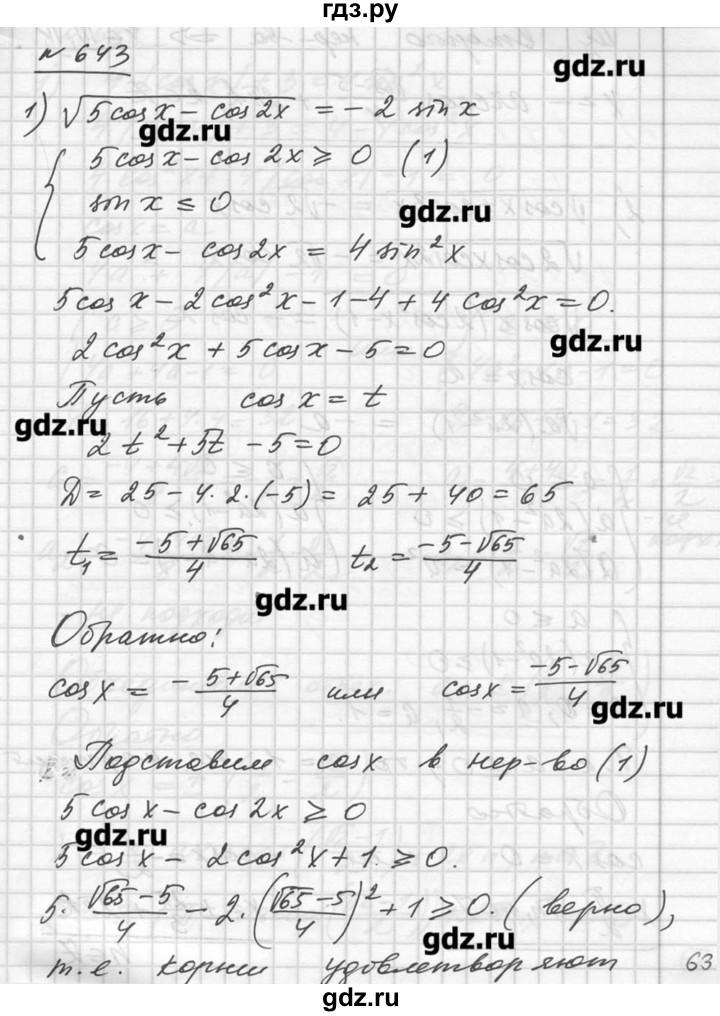 гдз.ру
N 643
gdz.ru
1) √(5cos x − cos 2x) = − 2 sin x
gdz.ru
{ 5cos x − cos 2x ≥ 0 (1)
sin x ≤ 0
gdz.ru
5cos x − cos 2x = 4 sin² x
5cos x − 2cos² x − 1 − 4 + 4 cos² x = 0.
gdz.ru
2 cos² x + 5cos x − 5 = 0
Пусть cos x = t
gdz.ru
2 t² + 5t − 5 = 0
Д = 25 − 4·2·(−5) = 25 + 40 = 65
t₁ = (−5 + √65)/4 t₂ = (−5 − √65)/4
gdz.ru
Обратно:
cos x = − (5 + √65)/4 или cos x = (−5 − √65)/4
gdz.ru
Подставим cos x в нер-во (1)
5 cos x − cos 2x ≥ 0
gdz.ru
5 cos x − 2cos² x + 1 ≥ 0.
5 · (√65 − 5)/4 − 2 · ((√65 − 5)/4)² + 1 ≥ 0. (верно),
gdz.ru
т.е. корни удовлетворяют
63
gdz.ru